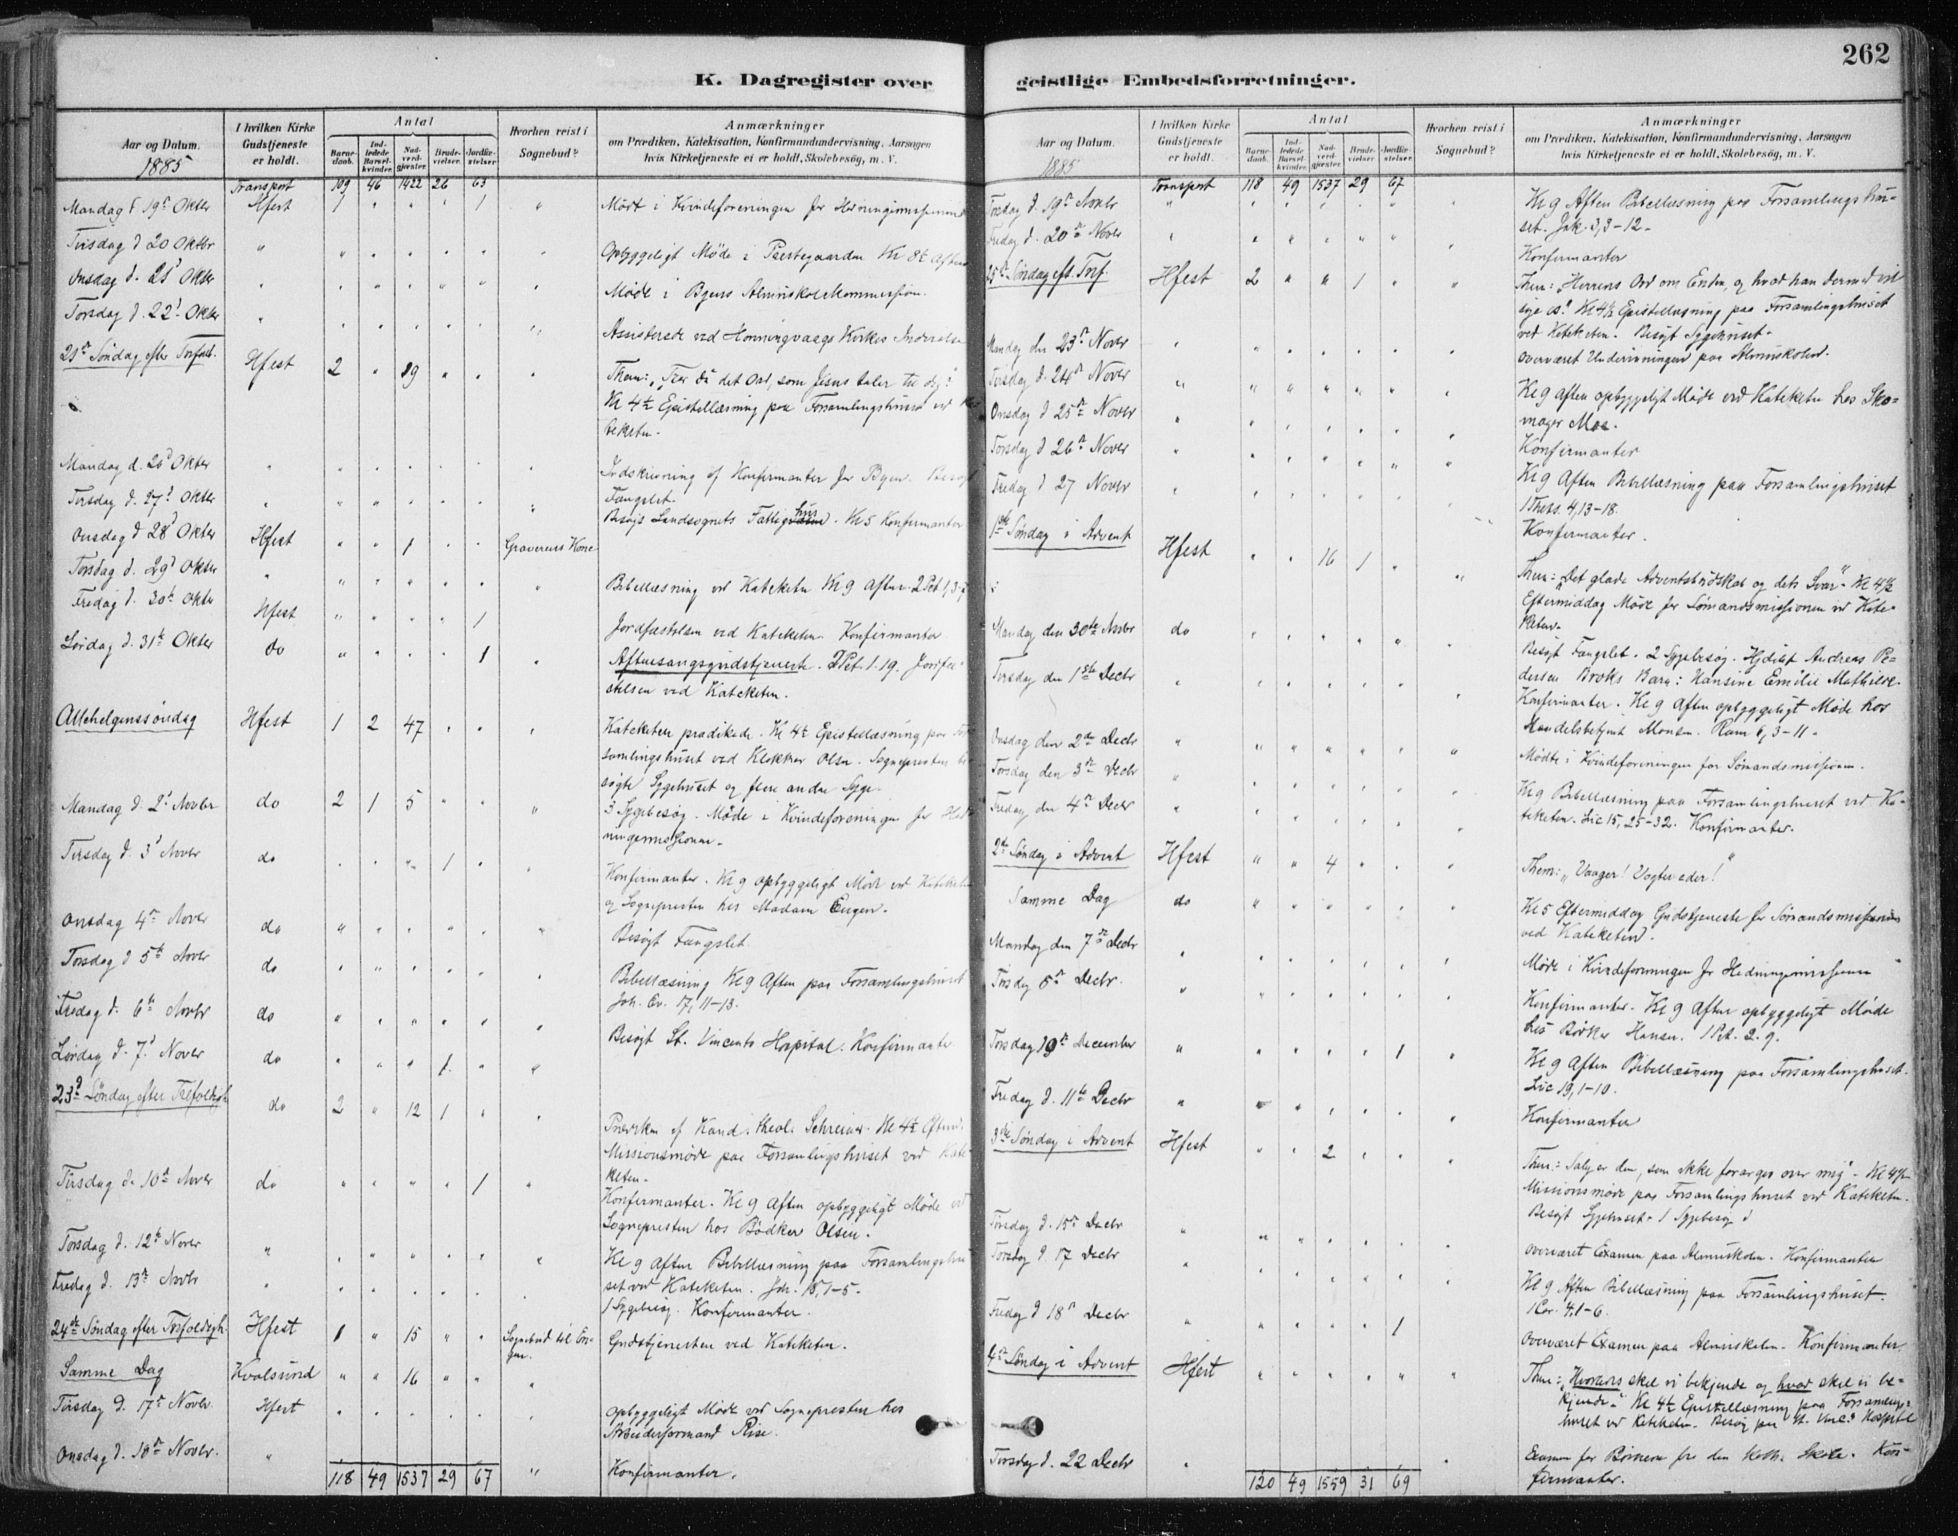 262
K. Dagregister over
Aar og Datum.
1885
I hvilken Kirke Gudstjeneste er holdt.
Antal
Barnedaab.
Indledede Barselkvinder.
Nadverdgjester
Brudevielser.
Jordfæstelser
Hvorhen reist i Sognebud?
Anmærkninger
om Prædiken, Katekisation, Konfirmandundervisning, Aarsagen
hvis Kirketjeneste ei er holdt, Skolebesög, m. V.
Transport 109 46 1422 26 63
Mandag d. 19de Oktbr Hfest 1 " " " 1 " Møde i Kvindeforeningen for Hedningemissionen
Tirsdag d 20 Oktbr " Opbyggeligt Møde i Prestegaarden Kl 8½ Aften
Onsdag d. 21d Oktbr " Møde i Byens Almueskolekommission.
Torsdag d. 22d Oktbr " Assisterede ved Honningvaags Kirkes Indvielse
21de Søndag efter Trefold. Hfest 2 " 19 " " " Thema: "Tror du det Ord, som Jesus taler til dig?"
Kl 4½ Epistellæsning paa Forsamlingshuset ved Kateketen.
Mandag d. 26d Oktbr " Indskrivning af Konfirmanter for Byen. Besøgt
Fængslet.
Tirsdag d. 27d Oktbr " Besøgt Landsognets Fattighus. Kl 5 Konfirmanter
Onsdag d 28d Oktbr Hfest " " 1 " " Graverens Kone
Torsdag d. 29d Oktbr " Bibellæsning ved Kateketen Kl 9 Aften 2 Pet 1,3-7
Fredag d. 30te Oktbr Hfest " " " " 1 Jordfæstelsen ved Kateketen. Konfirmanter
Lørdag d. 31te Oktbr do " " " " 1 " Aftensangsgudstjeneste. 2 Pet. 1. 19. Jordfæstelsen ved Kateketen.
Allehelgenssøndag Hfest 1 2 47 " " " Kateketen prædikede. Kl 4½ Epistellæsning paa Forsamlingshuset ved Klokker Olsen. Sognepresten besøgte Sygehuset og flere andre Syge.
Mandag d. 2d Novbr do 2 1 5 " " " 3 Sygebesøg. Møde i Kvindeforeningen for Hedningemissionen.
Tirsdag d. 3d Novbr do " " " 1 " " Konfirmanter. Kl 9 opbyggeligt Møde ved Kateketen
og Sognepresten hos Madam Eugen.
Onsdag 4de Novbr do " Besøgt Fængslet.
Torsdag d 5te Novbr do " Bibellæsning Kl 9 Aften paa Forsamlingshuset
Joh. Ev. 17, 11-13.
Fredag d. 6te Novbr do " Besøgt St. Vincents Hospital. Konfirmanter.
Lørdag d. 7d Novbr do " " " 1 " "
23d Søndag efter Trefoldigh. do 2 " 12 1 " " Prædiken af Kand. theol. Schreiner. Kl 4½ Efterm.
Missionsmøde paa Forsamlingshuset ved Kateketen.
Tirsdag d. 10de Novbr do " " " " 1 " Konfirmanter. Kl 9 Aften opbyggeligt Møde ved
Sognepresten hos Bødker Olsen.
Torsdag d. 12te Novbr " Kl 9 Aften Bibellæsning paa Forsamlingshuset ved Kateketen. Joh. 18, 1-5.
Fredag d. 13de Novbr " 1 Sygebesøg. Konfirmanter.
24de Søndag efter Trefoldigh. Hfest 1 " 15 " " Sognebud til Gudstjenesten ved Kateketen.
Samme Dag Kvalsund " " 16 " " "
Tirsdag d. 17de Novbr Hfest " Opbyggeligt Møde ved Sognepresten hos
Arbeiderformand Riise.
Onsdag d. 18de Novbr. " Konfirmanter.
118 49 1537 29 67
geistlige Embedsforretninger.
Aar og Datum.
1885
I hvilken Kirke Gudstjeneste er holdt.
Antal
Barnedaab.
Indledede Barselkvinder.
Nadverdgjester
Brudevielser.
Jordfæstelser
Hvorhen reist i Sognebud?
Anmærkninger
om Prædiken, Katekisation, Konfirmandundervisning, Aarsagen
hvis Kirketjeneste ei er holdt, Skolebesög, m. V.
Transport 118 49 1537 29 67
Torsdag d. 19de Novbr " Kl 9 Aften Bibellæsning paa Forsamlingshuset. Jak. 3, 3-12.
Fredag d. 20de Novbr " Konfirmanter
25de Søndag eft. Tref. Hfest 2 " " 1 " " Thema: Herrens Ord om Enden, og hvad han dermed vil
sige os? Kl 4½ Epistellæsning paa Forsamlingshuset
ved Kateketen. Besøgt Sygehuset.
Mandag den 23de Novbr " Overværet Undervisningen paa Almueskolen.
Tirsdag d. 24de Novbr " Kl 9 Aften opbyggeligt Møde ved Kateketen hos Skomager Moe.
Onsdag d 25de Novbr "
Torsdag d 26de Novbr " Konfirmanter
Fredag d 27 Novbr " Kl 9 Aften Bibellæsning paa Forsamlingshuset
1 Thess. 4, 13-18.
Konfirmanter.
1ste Søndag i Advent Hfest " " 16 1 " " Thema: "Det glade Adventsbudskab og dets Svar". Kl 4½
Eftermiddag Møde for Sømandsmissionen ved Kateketen.
Mandag den 30te Novbr do " Besøgt Fængslet. 2 Sygebesøg. Hjdøbt Andreas Pedersen Broks Barn: Hansine Emilie Mathilde.
Tirsdag den 1ste Decbr " Konfirmanter. Kl 9 Aften opbyggeligt Møde hos
Handelsbetjent Monsen. Rom 6, 3-11.
Onsdag den 2den Decbr " Mødte i Kvindeforeningen for Sømandsmissionen.
Torsdag den 3de Decbr " Kl 9 Bibellæsning paa Forsamlingshuset ved Kateketen. Luc 15, 25-32. Konfirmanter.
Fredag den 4de Decbr "
2den Søndag i Advent Hfest " " 4 " " " Thema: "Vaager! Vogter eder!"
Samme Dag do " Kl 5 Eftermiddag Gudstjeneste for Sømandsmissionen
ved Kateketen.
Mandag den 7de Decbr " Møde i Kvindeforeningen for Hedningemissionen
Tirsdag 8de Decbr. " Konfirmanter. Kl 9 Aften opbyggeligt Møde
hos Bødker Hansen. 1 Pet. 2. 9.
Torsdag 10de December " " " " " 1 " Kl 9 Aften Bibellæsning paa Forsamlingshuset.
Luc 19, 1-10.
Fredag d. 11te Decbr " Konfirmanter
3die Søndag i Advent Hfest " " 2 " " " Thema: "Salig er den, som ikke forarges over mig". Kl 4½
Missionsmøde paa Forsamlingshuset ved Kateketen.
Besøgt Sygehuset. 1 Sygebesøg
Tirsdag d. 15de Decbr " Overværet Examen paa Almueskolen. Konfirmanter
Torsdag d 17 Decbr " Kl 9 Aften Bibellæsning paa Forsamlingshuset.
1 Cor. 4. 1-6.
Fredag d 18de Decbr " " " " " 1 Overværet Examen paa Almueskolen. Konfirmanter
4de Søndag i Advent Hfest " Thema: "Hvorledes skal vi bekjende og hvad skal vi bekjende". Kl 4½ Epistellæsning paa Forsamlingshuset ved Kateketen. Besøg paa St. Vinc.s Hospital
Torsdag d. 22 Decbr " Examen for Børnene fra den kath. Skole. Konfirmanter.
120 49 1559 31 69